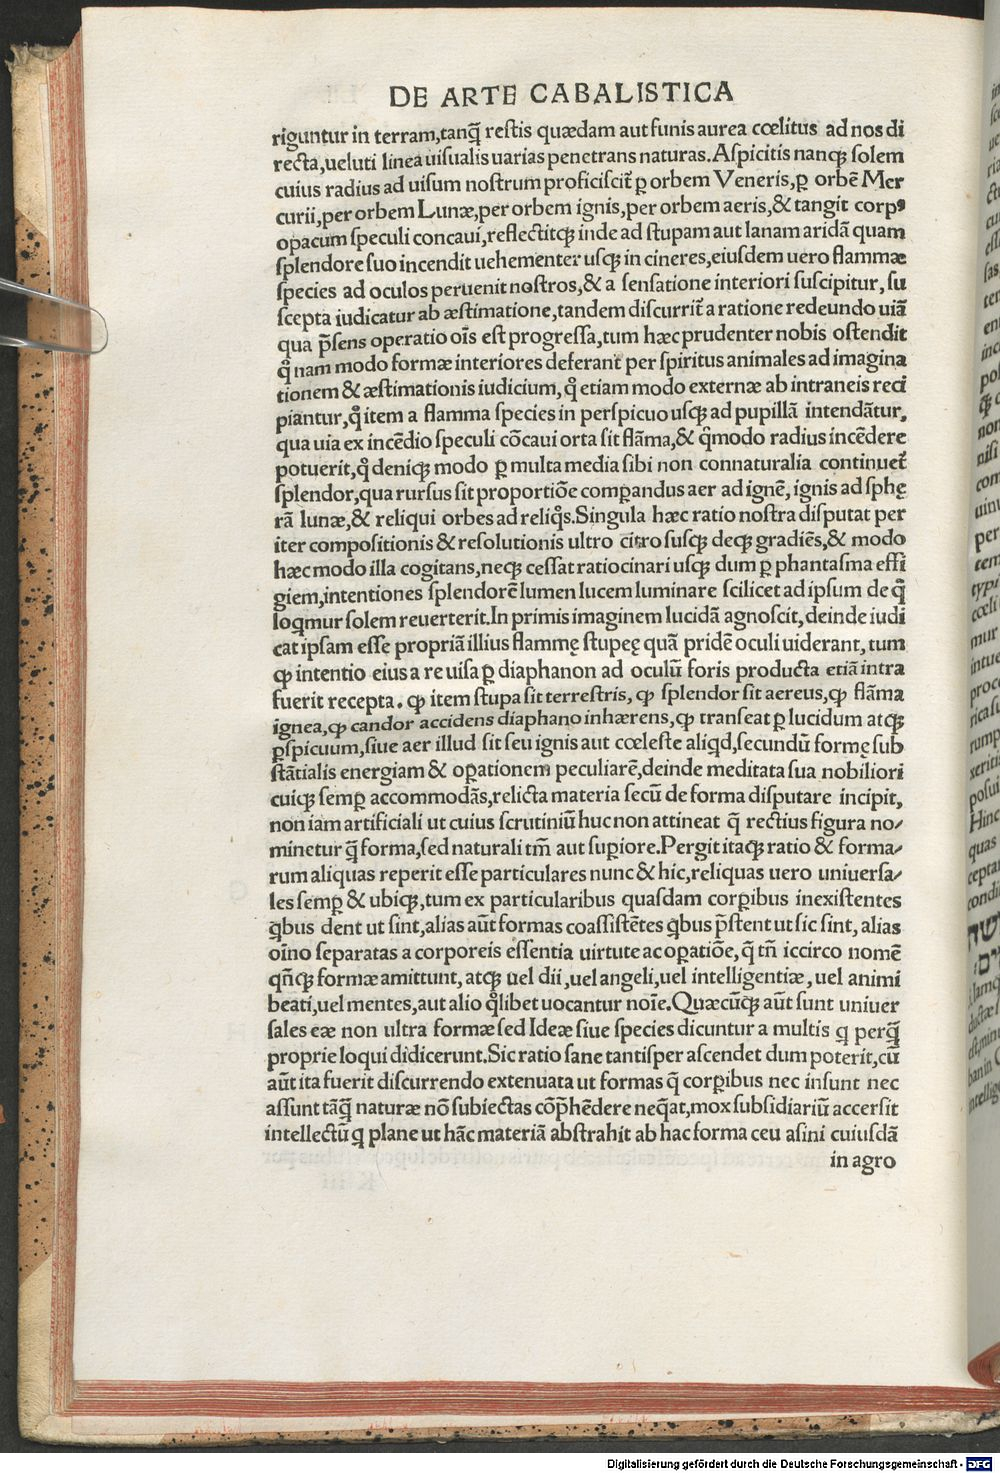 DE ARTE CABALISTICA
riguntur in terram,tanq̃ reſtis quædam aut funis aurea cœlitus ad nos di
recta,ueluti linea uiſualis uarias penetrans naturas.Aſpicitis nanqꝫ ſolem
cuius radius ad uiſum noſtrum proficiſcit᷑ ꝑ orbem Veneris,ꝑ orbẽ Mer
curii,per orbem Lunæ,per orbem ignis,per orbem aeris,& tangit corpꝰ
opacum ſpeculi concaui,reflectitqꝫ inde ad ſtupam aut lanam aridã quam
ſplendore ſuo incendit uehementer uſqꝫ in cineres,eiuſdem uero flammæ
ſpecies ad oculos peruenit noſtros,& a ſenſatione interiori ſuſcipitur, ſu
ſcepta iudicatur ab æſtimatione,tandem diſcurrit᷑ a ratione redeundo uiã
qua p̃ſens operatio oĩs eſt progreſſa,tum hæc prudenter nobis oſtendit
qͦ nam modo formæ interiores deferant᷑ per ſpiritus animales ad imagina
tionem & æſtimationis iudicium, qͦ etiam modo externæ ab intraneis reci
piantur,qͦ item a flamma ſpecies in perſpicuo uſqꝫ ad pupillã intendãtur,
qua uia ex incẽdio ſpeculi cõcaui orta ſit flãma,& qͦmodo radius incẽdere
potuerit,qͦ deniqꝫ modo ꝑ multa media ſibi non connaturalia continuet᷑
ſplendor,qua rurſus ſit proportiõe comꝑandus aer ad ignẽ, ignis ad ſphę
rã lunæ,& reliqui orbes ad reliqͦs.Singula hæc ratio noſtra diſputat per
iter compoſitionis & reſolutionis ultro citro ſuſqꝫ deqꝫ gradiẽs,& modo
hæc modo illa cogitans,neqꝫ ceſſat ratiocinari uſqꝫ dum ꝑ phantaſma effi
giem,intentiones ſplendorẽ lumen lucem luminare ſcilicet ad ipſum de qͦ
loqmur ſolem reuerterit.In primis imaginem lucidã agnoſcit, deinde iudi
cat ipſam eſſe propriã illius flammę ſtupeę quã pridẽ oculi uiderant, tum
ꝙ intentio eius a re uiſa ꝑ diaphanon ad oculũ foris producta etiã intra
fuerit recepta. ꝙ item ſtupa ſit terreſtris, ꝙ ſplendor ſit aereus,ꝙ flãma
ignea,ꝙ candor accidens diaphano inhærens,ꝙ tranſeat ꝑ lucidum atqꝫ
ꝑſpicuum,ſiue aer illud ſit ſeu ignis aut cœleſte aliqd,ſecundũ formę ſub
ſtãtialis energiam & oꝑationem peculiarẽ,deinde meditata ſua nobiliori
cuiqꝫ ſemꝑ accommodãs,relicta materia ſecũ de forma diſputare incipit,
non iam artificiali ut cuius ſcrutiniũ huc non attineat q̃ rectius figura no/
minetur q̃ forma,ſed naturali tm̃ aut ſuꝑiore.Pergit itaqꝫ ratio & forma/
rum aliquas reperit eſſe particulares nunc & hic,reliquas uero uniuerſa/
les ſemꝑ & ubiqꝫ,tum ex particularibus quaſdam corꝑibus inexiſtentes
qbus dent ut ſint,alias aũt formas coaſſiſtẽtes qbus p̃ſtent ut ſic ſint, alias
oĩno ſeparatas a corporeis eſſentia uirtute ac oꝑatiõe, q̃ tñ iccirco nomẽ
qñqꝫ formæ amittunt, atqꝫ uel dii,uel angeli,uel intelligentiæ, uel animi
beati,uel mentes,aut alio qͦlibet uocantur noĩe.Quæcũqꝫ aũt ſunt uniuer
ſales eæ non ultra formæ ſed Ideæ ſiue ſpecies dicuntur a multis q perq̃
proprie loqui didicerunt.Sic ratio ſane tantiſper aſcendet dum poterit,cũ
aũt ita fuerit diſcurrendo extenuata ut formas q̃ corꝑibus nec inſunt nec
aſſunt tãq̃ naturæ nõ ſubiectas cõp̃hẽdere neqͣat,mox ſubſidiariũ accerſit
intellectũ q plane ut hãc materiã abſtrahit ab hac forma ceu aſini cuiuſdã
in agro
Digitalisierung gefördert durch die Deutsche Forschungsgemeinschaft - DFG